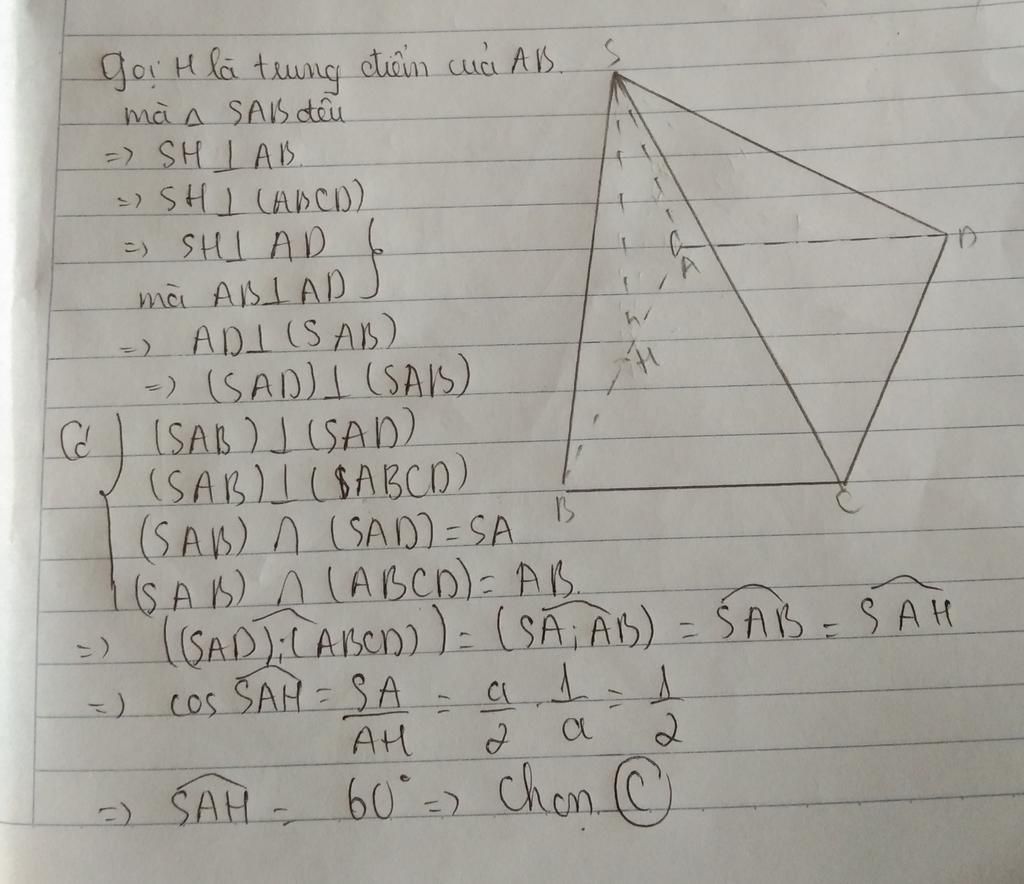 Gọi H là trung điểm của AB.
mà △ SAB đều
=> SH ⊥ AB
=> SH ⊥ (ABCD)
=> SH ⊥ AD }
mà AB ⊥ AD
=> AD ⊥ (SAB)
=> (SAD) ⊥ (SAB)
Có { (SAB) ⊥ (SAD)
(SAB) ⊥ (ABCD)
(SAB) ∩ (SAD) = SA
(SAB) ∩ (ABCD) = AB.
=> ((SAD); (ABCD)) = (SA; AB) = SAB = SAH
=> cos SAH = SA/AH = a/2 . 1/a = 1/2
=> SAH = 60° => Chọn (C)
S
D
A
H
B
C